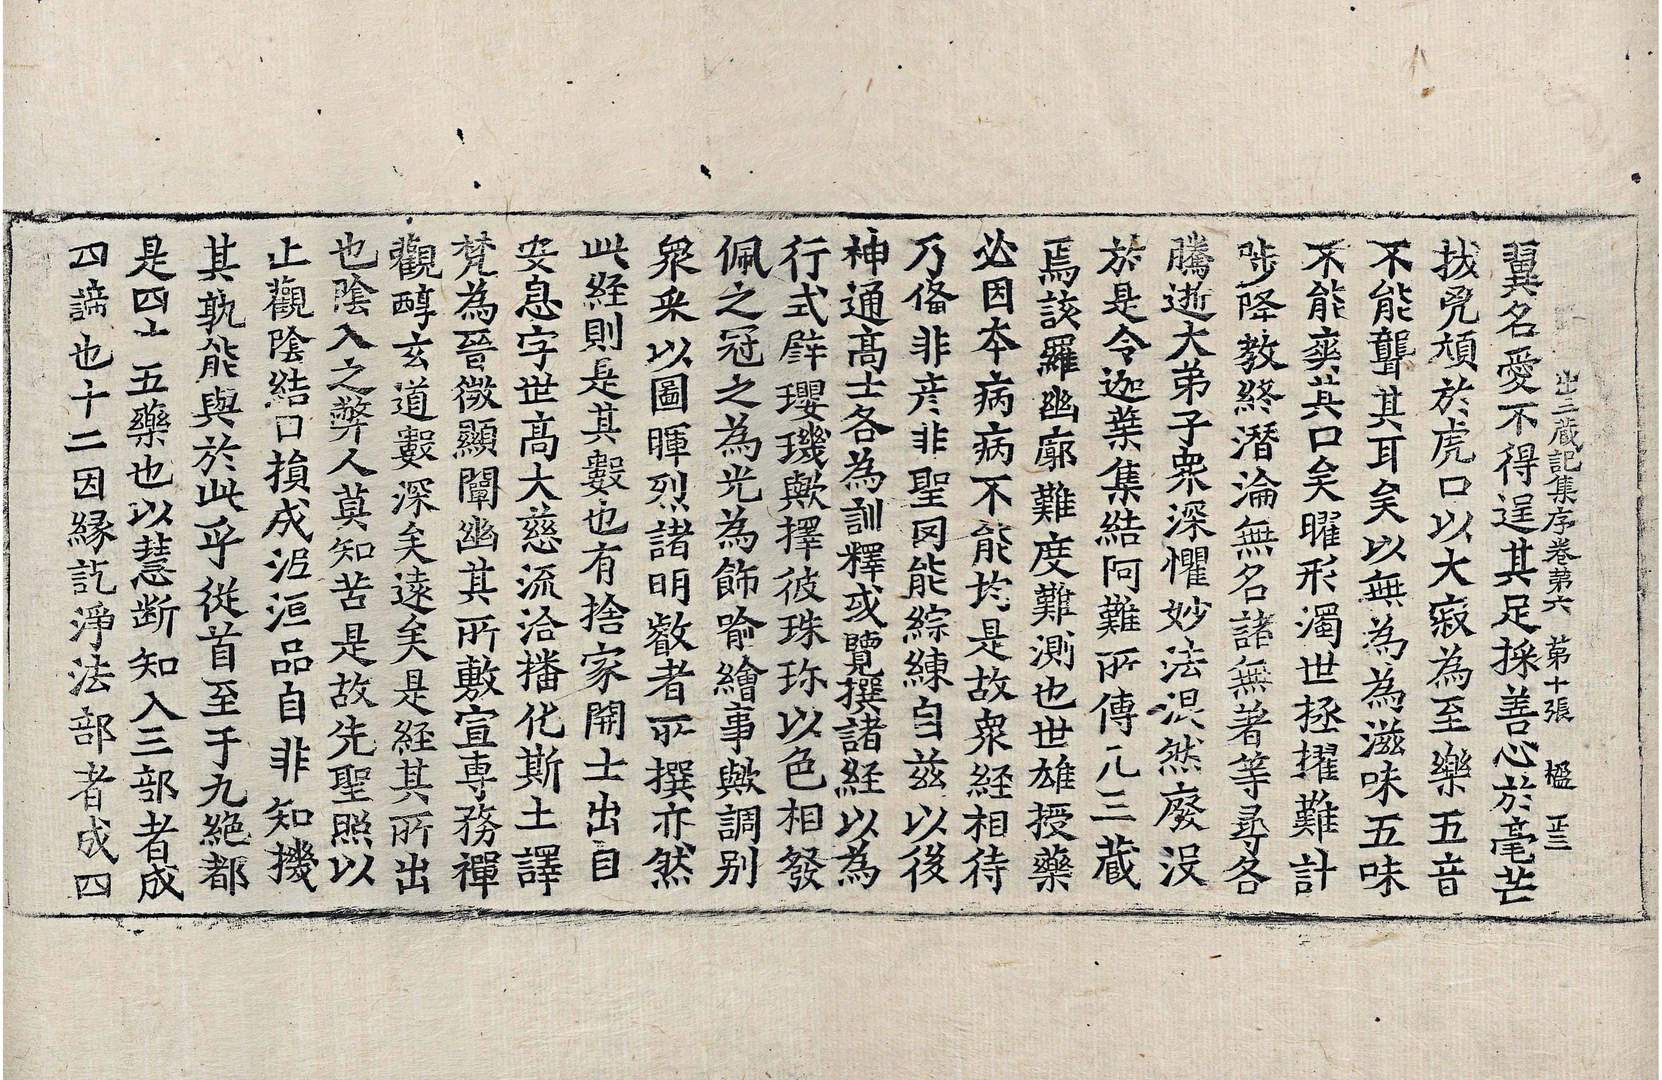 出三藏記集序卷第六 第十張 楹
翼名愛不得逞其足採善心於毫芒
拔兇頑於虎口以大寂為至樂五音
不能聾其耳矣以無為為滋味五味
不能爽其口矣曜形濁世拯擢難計
陟降教終潛淪無名諸無著等尋各
騰逝大弟子衆深懼妙法混然廢沒
於是令迦葉集結阿難所傳凡三藏
焉該羅幽廓難度難測也世雄授藥
必因本病病不能均是故衆經相待
乃俻非彦非聖罔能綜練自兹以後
神通高士各為訓釋或覽撰諸經以為
行式辟瓔璣歟擇彼珠珎以色相發
佩之冠之為光為飾喻繪事歟調別
衆采以圖暉烈諸明叡者所撰亦然
此経則是其數也有捨家開士出自
安息字世高大慈流洽播化斯土譯
梵為晉微顯闡幽其所敷宣専務禪
觀醇玄道數深矣遠矣是経其所出
也陰入之弊人莫知苦是故先聖照以
止觀陰結日損成泥洹品自非知機
其孰能與於此乎從首至于九絶都
是四十五藥也以慧断知入三部者成
四諦也十二因縁訖淨法部者成四